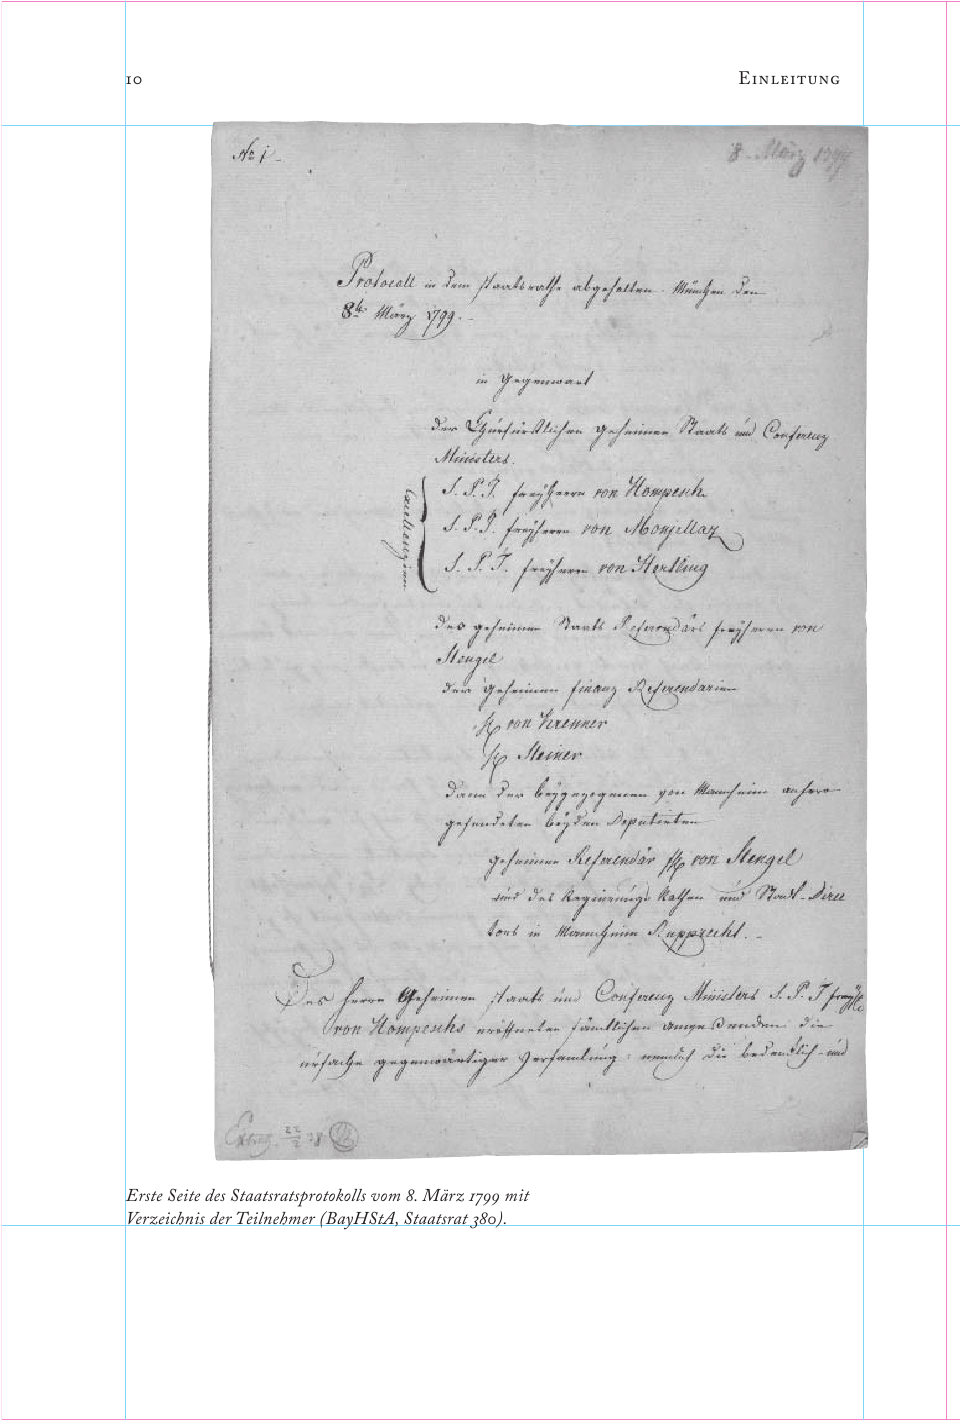 10
EINLEITUNG
No 1.
8. März 1799
Protocoll in dem Staatsrathe abgehalten München den
8t. März 1799.
in Gegenwart
der Churfürstlichen geheimen Staats und Conferenz
Ministers.
S. P. T. Freyherrn von Hompesch
S. P. T. Freyherrn von Monzellaz
S. P. T. Freyherrn von Hertling
Excellenzien
des geheimen Staats Referendärs Freyherrn von
Stengel
der geheimen Finanz Referendarien
von Krenner
Steiner
dann der beygezogenen von Mannheim anhero
gesendeten beyden Deputirten
geheimen Referendär von Stengel
und des Regierungs Rathen und Stadt-Direc
tors in Mannheim Rupprecht.
Des Herrn Geheimen Staats und Conferenz Ministers S. P. T
von Hompeschs eröffneten sämtlichen anwesenden die
ursache gegenwärtiger Versamlung: nemlich die bedenklich- und
22
2
78
Erste Seite des Staatsratsprotokolls vom 8. März 1799 mit
Verzeichnis der Teilnehmer (BayHStA, Staatsrat 380).